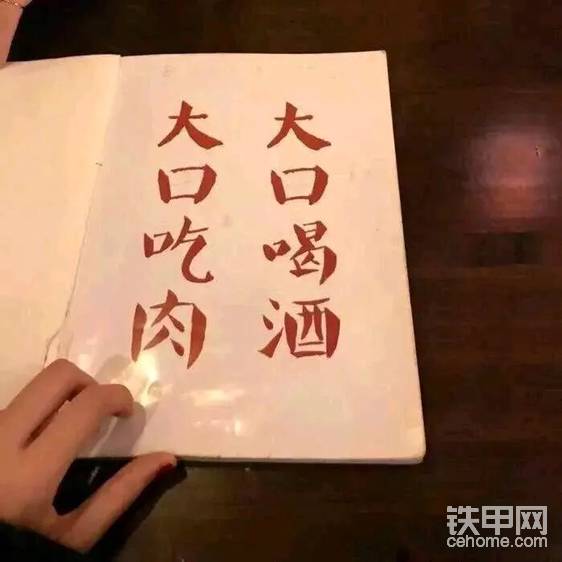 大口喝酒
大口吃肉
铁甲网
cehome.com